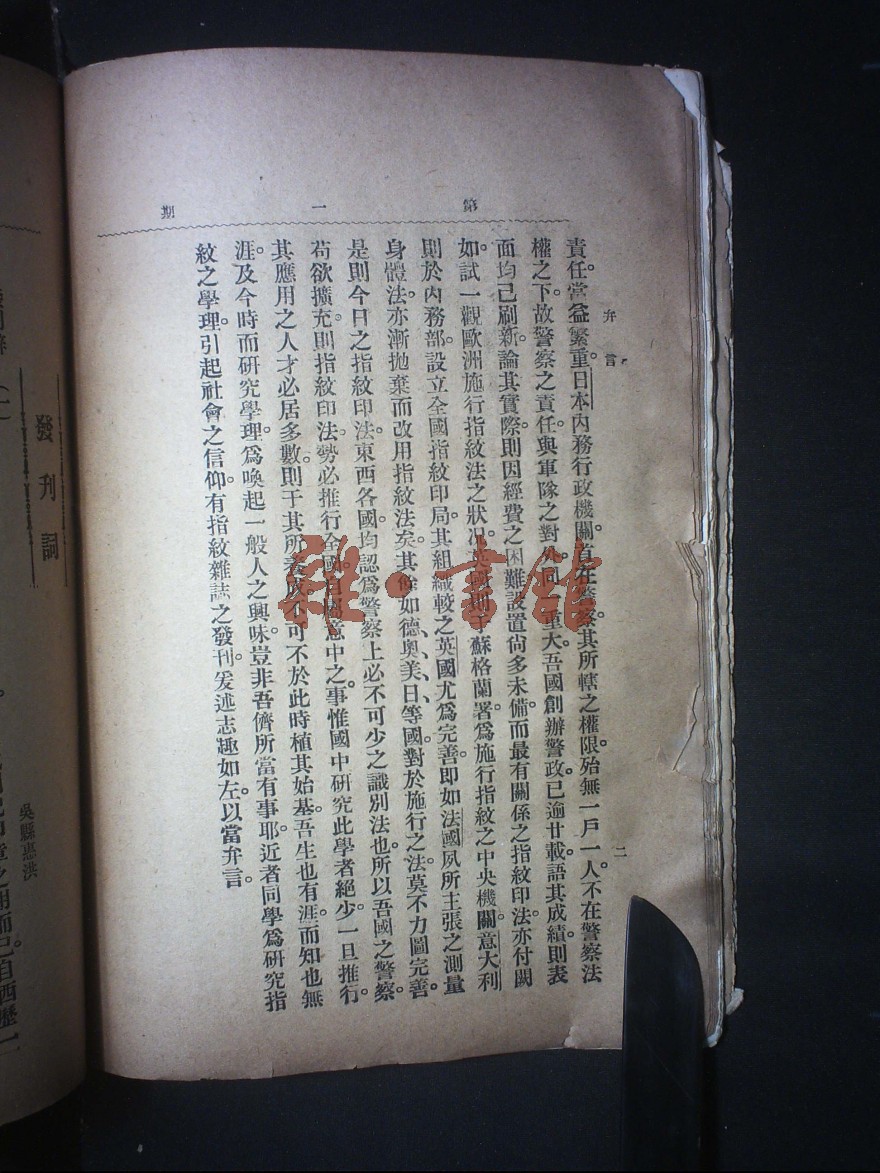 第一期
弁言
二
責任。當益繁重。日本內務行政機關。首在警察。其所轄之權限。殆無一戶一人。不在警察法
權之下。故警察之責任。與軍隊之對外。同一重大。吾國創辦警政。已逾廿載。語其成績。則表
面均已刷新。論其實際。則因經費之困難。設置尙多未備。而最有關係之指紋印法。亦付闕
如。試一觀歐洲施行指紋法之狀况。英國則于蘇格蘭署爲施行指紋之中央機關。意大利
則於內務部設立全國指紋印局。其組織較之英國尤爲完善。卽如法國夙所主張之測量
身體法。亦漸拋棄而改用指紋法矣。其餘如德、奧、美、日等國。對於施行之法。莫不力圖完善。
是則今日之指紋印法。東西各國。均認爲警察上必不可少之識別法也。所以吾國之警察。
苟欲擴充。則指紋印法。勢必推行全國。自屬意中之事。惟國中研究此學者絕少。一旦推行。
其應用之人才必居多數。則于其所養成。不可不於此時植其始基。吾生也有涯。而知也無
涯。及今時而研究學理。爲喚起一般人之興味。豈非吾儕所當有事耶。近者同學爲研究指
紋之學理。引起社會之信仰。有指紋雜誌之發刊。爰述志趣如左。以當弁言。
發刊詞
吳縣惠洪
而已。自西歷一
雜·書館